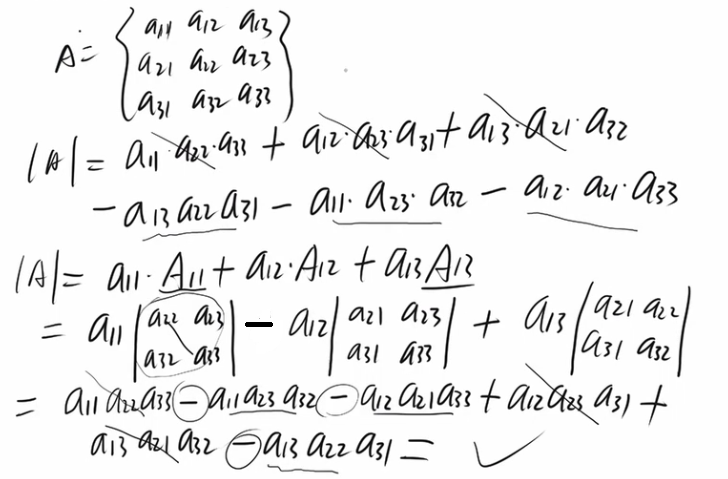 A = { a11 a12 a13
a21 a22 a23
a31 a32 a33 }
|A| = a11·a22·a33 + a12·a23·a31 + a13·a21·a32
- a13 a22 a31 - a11·a23·a32 - a12·a21·a33
|A| = a11·A11 + a12·A12 + a13 A13
= a11 | a22 a23 | - a12 | a21 a23 | + a13 | a21 a22 |
| a32 a33 | | a31 a33 | | a31 a32 |
= a11 a22 a33 - a11 a23 a32 - a12 a21 a33 + a12 a23 a31 +
a13 a21 a32 - a13 a22 a31 = ✓